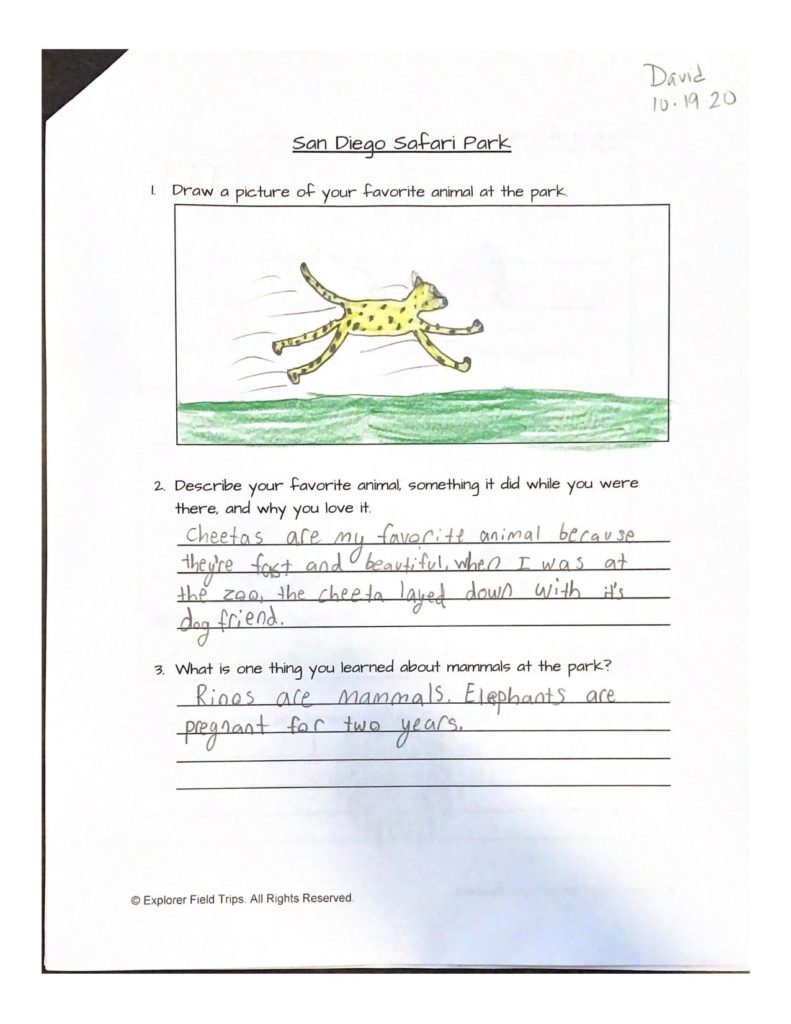 David
10.19.20
San Diego Safari Park
1. Draw a picture of your favorite animal at the park.
2. Describe your favorite animal, something it did while you were
there, and why you love it.
Cheetas are my favorite animal because
they're fast and beautiful. when I was at
the zoo, the cheeta layed down with it's
dog friend.
3. What is one thing you learned about mammals at the park?
Rinos are mammals. Elephants are
pregnant for two years.
© Explorer Field Trips. All Rights Reserved.